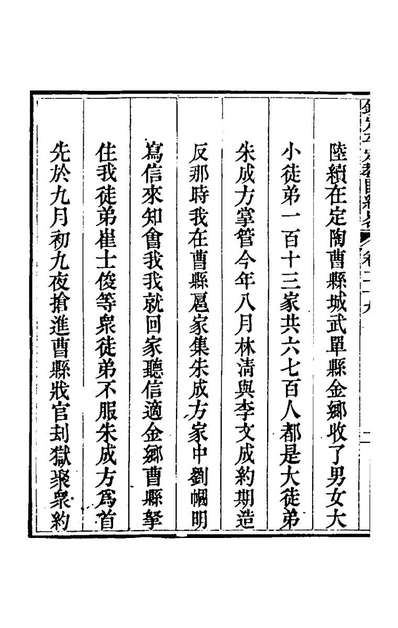 陸續在定陶曹縣城武單縣金鄉收了男女大
小徒弟一百十三家共六七百人都是大徒弟
朱成方掌管今年八月林清與李文成約期造
反那時我在曹縣扈家集朱成方家中劉幗明
寫信來知會我我就回家聽信適金鄉曹縣拏
住我徒弟崔士俊等衆徒弟不服朱成方爲首
先於九月初九夜搶進曹縣戕官刦獄聚衆約